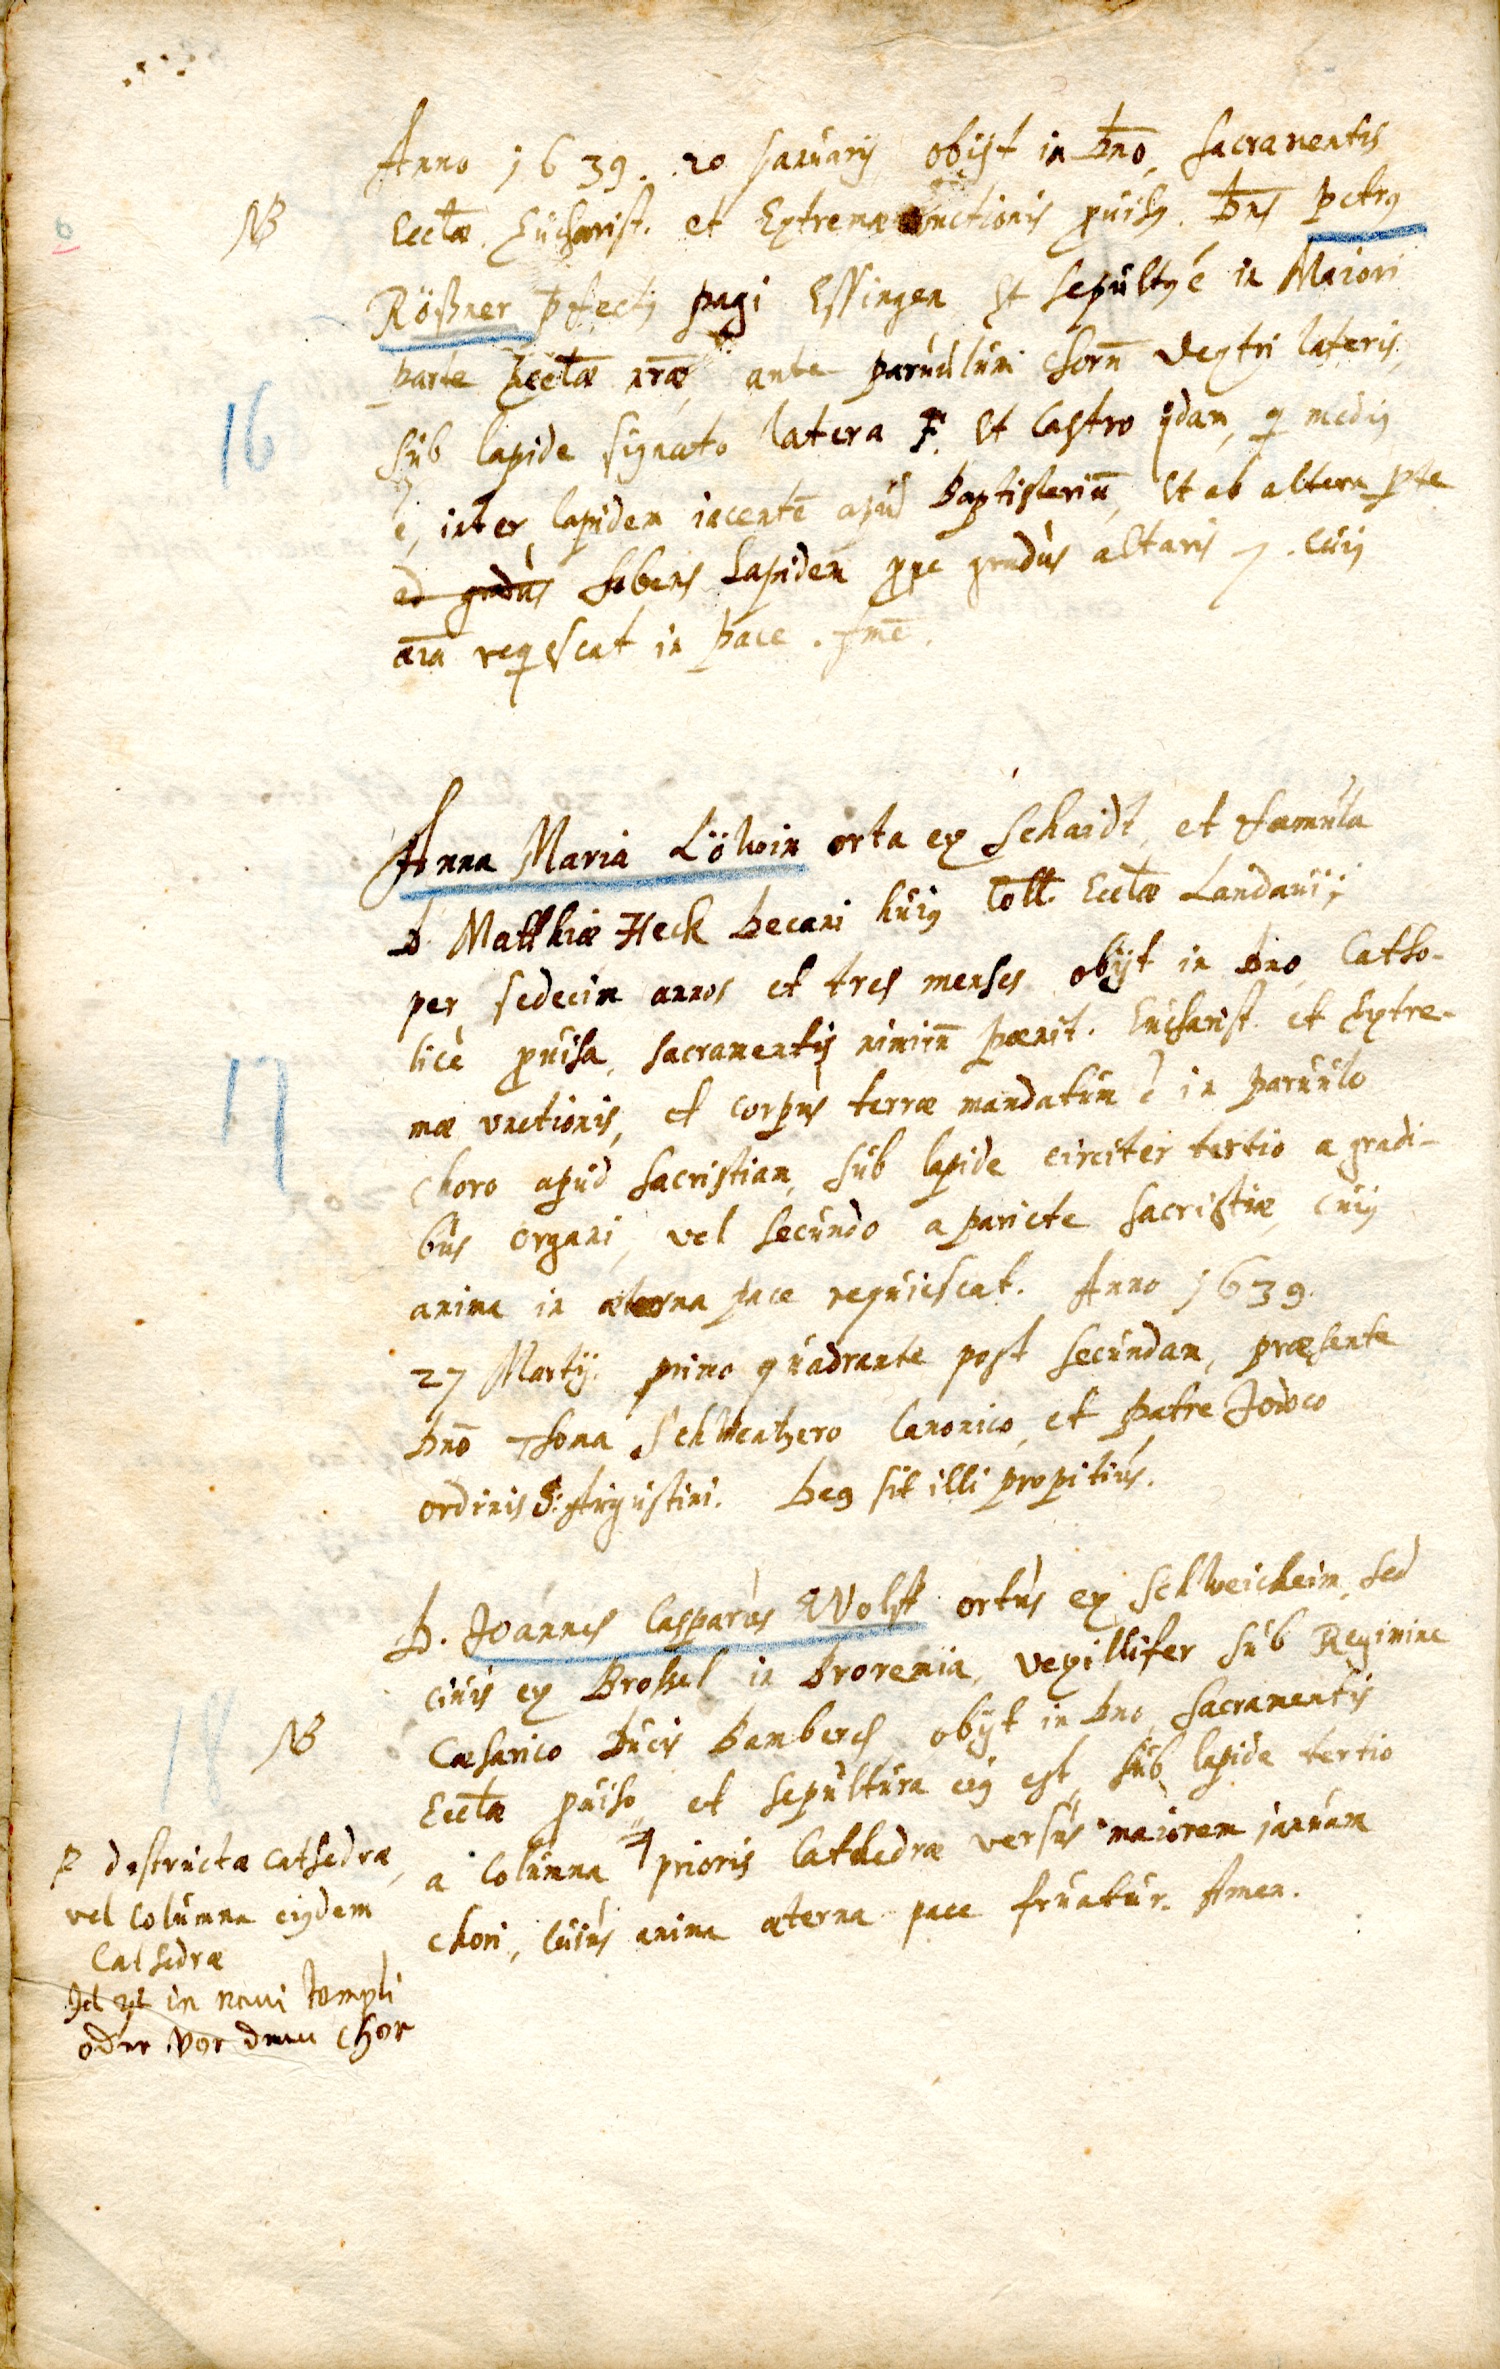 Anno 1639. 20 Januarij obijt in Dno, Sacramentis
NB
Eccłæ. Eucharist. et Extremæ Unctionis puisq. Dns Petrq
Rößner Pfectq pagi Essingen et sepultq ē in Maiori
parte Eccłæ nræ, ante paruulum Chorū dextri lateris,
16
sub lapide signato latera F. et Castro qdam, q mediq
ē, inter lapidem iacentē apud Baptisteriū, et ab altera pte
ad gradus habens Lapidem ppe gradus altaris 7. Cuiq
āīa reqescat in pace. Amē.
Anna Maria Löwin orta ex Schaidt, et famula
D. Matthiæ Heck Decani huiq Coll. Eccłæ Landauij
per sedecim annos et tres menses obijt in Dno, Catho-
licè puisa, sacramentis nimirū Pœnit. Eucharist. et Extre-
17
mæ vnctionis, et corpus terræ mandatum ē in paruulo
choro apud Sacristiam, sub lapide circiter tertio a gradi-
bus organi, vel secundo a pariete Sacristiæ, cuiq
anima in æterna pace requiescat. Anno 1639.
27 Martij. primo quadrante post secundam, præsente
Dnō Thoma Schwentzero Canonico, et Patre Jodoco
ordinis S. Augustini. Deq sit illi propitius.
D. Joannes Casparus Wolff ortus ex Schweicheim, sed
ciuis ex Broßel in Broremia, vexillifer sub Regimine
18
NB
Cæsarico Ducis Bamberch obijt in Dno, Sacramentis
Eccłæ puiso, et sepultura eiq est, sub lapide tertio
a Columna prioris Cathedræ versus maiorem januam
chori, cuius anima æterna pace fruatur. Amen.
destructæ cathedræ,
vel columna eiqdem
Cathedræ
in naui templi
oder vor dem chor